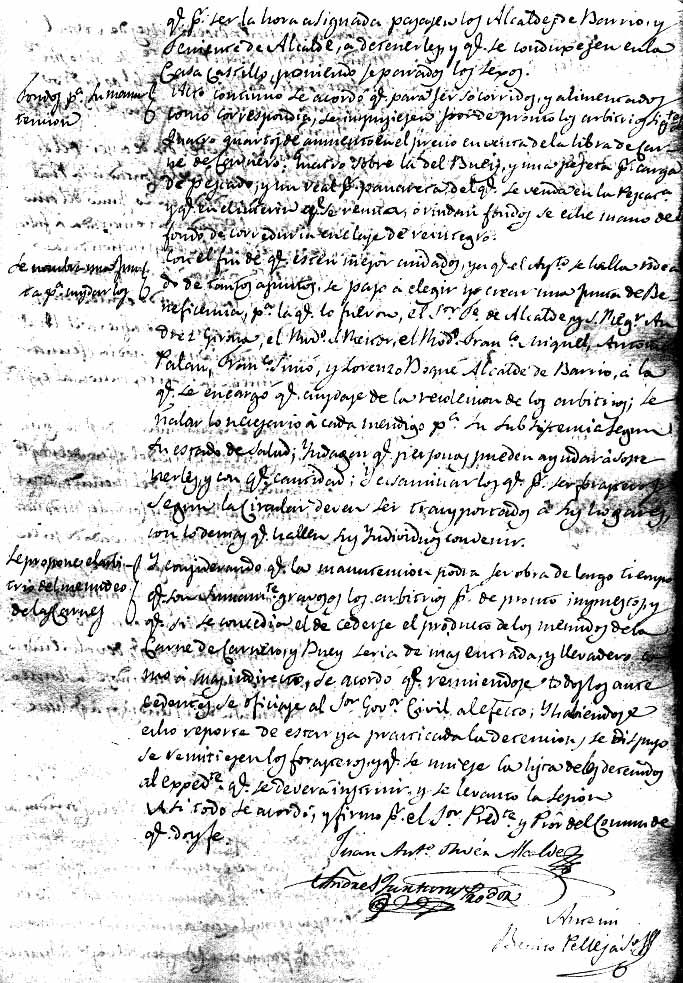 qe. pr. ser la hora asignada pasasen los Alcaldes de Barrio, y
Teniente de Alcalde, a detenerles y qe. se condugesen en la
Casa Castillo, poniendo separados los sexos.
Fondos pa. su manu
tencion
Acto continuo se acordó qe. para ser socorridos, y alimentados
como correspondia, se impusiesen por de pronto los arbitrios sigtes.
quatro quartos de aumento en el precio en venta de la libra de Car
ne de Carnero: quatro sobre la del Buey, y una peseta pr. carga
de pescado, y un real pr. panarera del qe. se venda en la Pescaa.
y qe. en el interin qe. se reunia, ó rindan fondos se eche mano del
fondo de correduria en clase de reintegro.
Se nombre una Jun
ta pa. cuydar los
Con el fin de qe. esten mejor cuidados, ya qe. el Ayto. se halla rodea
do de tantos asuntos, se pasó a elegir y crear una Junta de Be
neficencia, pa. la qe. lo fueron, el Sor. Te. de Alcalde
el Migl. An
drez Giraui, el Rexor., el Fran.co Miquel, Antonio
Palau, Fran.co Simó, y Lorenzo Boqué Alcalde de Barrio, á la
qe. se encargó qe. cuydase de la recoleccion de los arbitrios; se
ñalar lo necesario á cada mendigo pa. su subsistencia segun
su estado de salud; Yndagen qe. personas pueden ayudar á soste
nerles, y con qe. cantidad; Y examinar los qe. pr. ser forasteros
segun la Circular devan ser transportados á sus hogares,
con lo demas qe. hallen sus Yndividuos convenir.
Se propone el arbi
trio del menudeo
de las Carnes
Y considerando qe. la manutencion podia ser obra de largo tiempo
qe. son sumamte. gravosos los arbitrios pr. de pronto impuestos, y
qe. si se concedia el de cederse el producto de los menudos de la
Carne de Carnero, y Buey seria de mas entrada, y llevadero co
mo á mas indirecto, se acordó qe. reuniendose todos los ante
cedentes se oficiase al Sor. Govor. Civil al efecto; Y habiendose
reporte de estar ya practicada la detencion, se dispuso
se remitiesen los forasteros, y qe. se uniese la lista de los detenidos
al expedte. qe. se deverá instruir, y se levantó la sesion
Asi todo se acordó, y firmó pr. el Sor. Predte. y Pror. del Comun de
qe. doy fe.
Juan Anto. Alcalde
Andres
Ante mi
Benito Pellejá So.